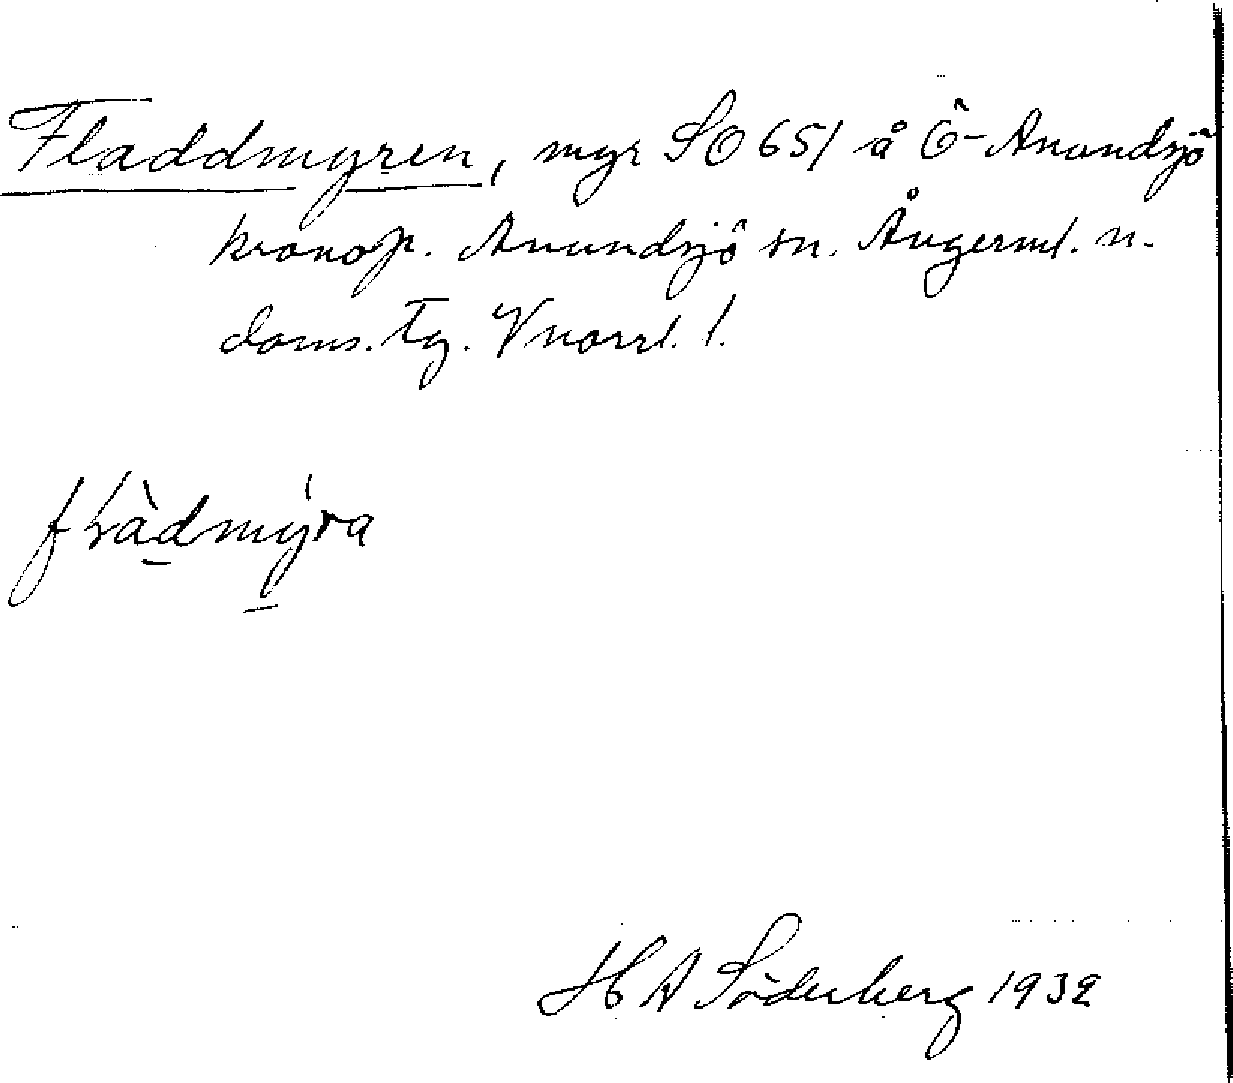 Fladdmyren, myr SO 651 å Ö-Anundsjö
kronop. Anundsjö sn. Ångerml. n.
doms. tg. Vnorrl. l.
fƚàdmýra
H A Söderberg 1932